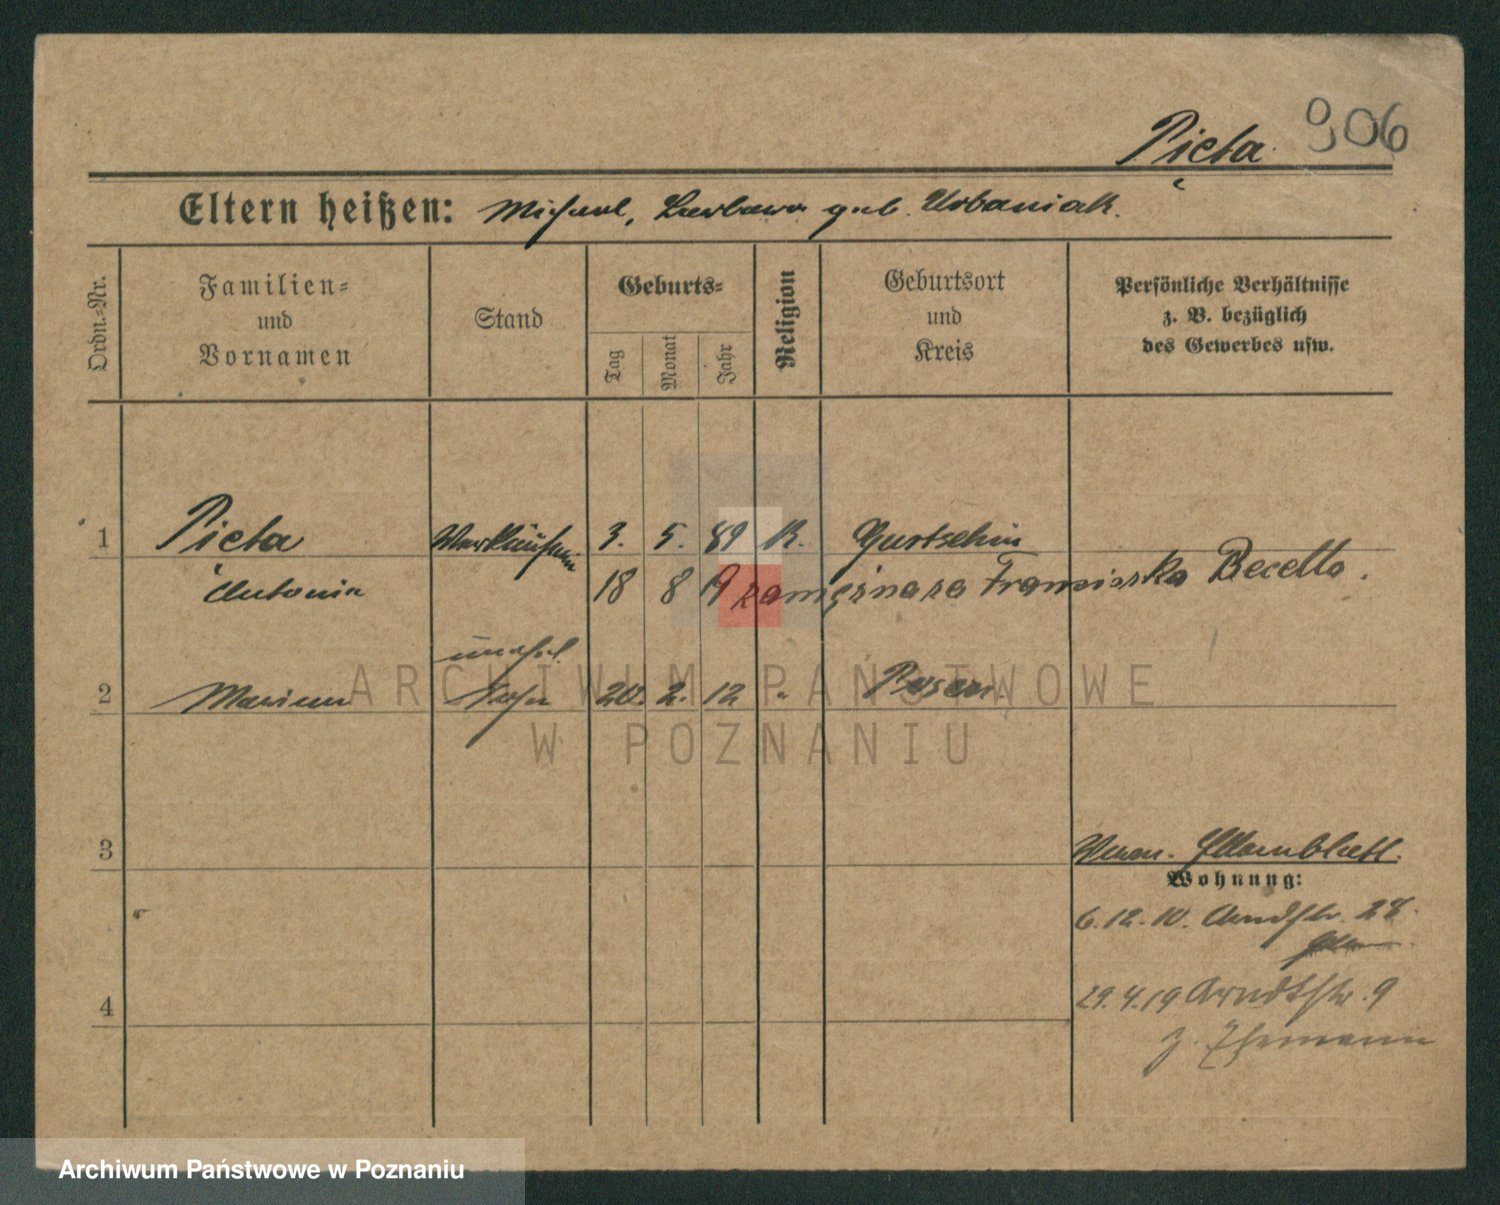 906
Pięta
Eltern heißen: Michael, Barbara geb. Urbaniak.
Ordn.-Nr.
Familien-
und
Vornamen
Stand
Geburts-
Tag
Monat
Jahr
Religion
Geburtsort
und
Kreis
Persönliche Verhältnisse
z. B. bezüglich
des Gewerbes usw.
1 Pięta Verkäuferin 3. 5. 89 K. Gurtschin
Antonia 18 8 19 zamężna za Franciszka Becella.
unehel.
2 Marian Sohn 20. 2. 12 " Posen
3
Stammblatt.
Wohnung:
6. 12. 10. Arndtstr. 28.
4
29.4.19 Arndtstr. 9
z. Ehemann
ARCHIWUM PAŃSTWOWE
W POZNANIU
Archiwum Państwowe w Poznaniu